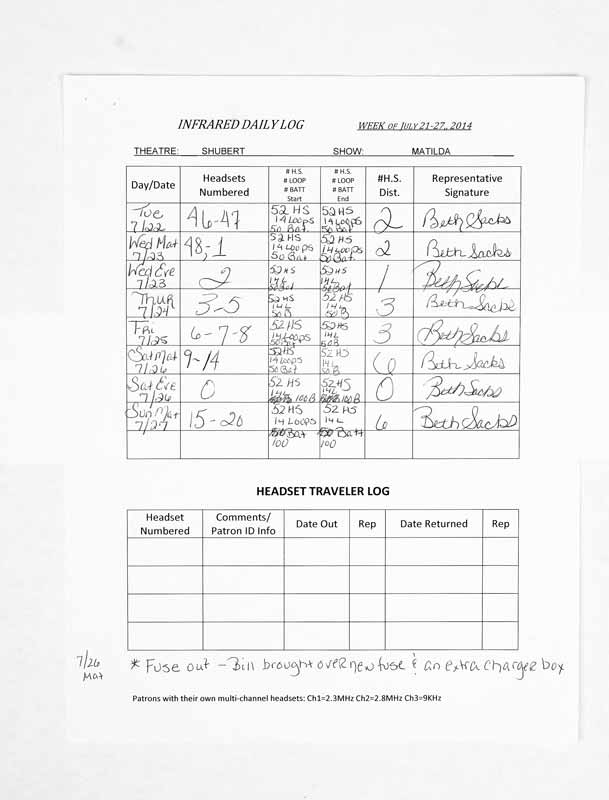 INFRARED DAILY LOG WEEK OF JULY 21-27, 2014
THEATRE: SHUBERT SHOW: MATILDA
Day/Date Headsets Numbered # H.S. # LOOP # BATT Start # H.S. # LOOP # BATT End #H.S. Dist. Representative Signature
Tue 7/22 46-47 52 HS 14 Loops 50 Bat. 52 HS 14 Loops 50 Bat. 2 Beth Sacks
Wed Mat 7/23 48,1 52 HS 14 Loops 50 Bat 52 HS 14 Loops 50 Bat 2 Beth Sacks
Wed Eve 7/23 2 52 HS 14 L 50 Bat 52 HS 14 L 50 Bat 1 Beth Sacks
Thur 7/24 3-5 52 HS 14 L 50 B 52 HS 14 L 50 B 3 Beth Sacks
Fri 7/25 6-7-8 52 HS 14 Loops 50 Bat 52 HS 14 L 50 B 3 Beth Sacks
Sat Mat 7/26 9-14 52 HS 14 Loops 50 Bat 52 HS 14 L 50 B 6 Beth Sacks
Sat Eve 7/26 0 52 HS 14 L 100 B 52 HS 14 L 100 B 0 Beth Sacks
Sun Mat 7/27 15-20 52 HS 14 Loops 50 Bat 100 52 HS 14 L 50 Bat 100 6 Beth Sacks
HEADSET TRAVELER LOG
Headset Numbered Comments/ Patron ID Info Date Out Rep Date Returned Rep
7/26 Mat * Fuse out - Bill brought over new fuse & an extra charger box
Patrons with their own multi-channel headsets: Ch1=2.3MHz Ch2=2.8MHz Ch3=9KHz